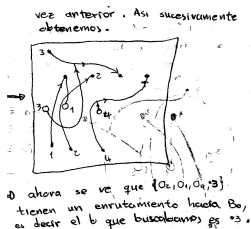 vez anterior. Asi sucesivamente
obtenemos.
3
2
3
1
4
8
1
2
4
ahora se ve que {O2,O1,O4,3}
tienen un enrutamiento hacia B0,
es decir el b que buscabamos es 3.